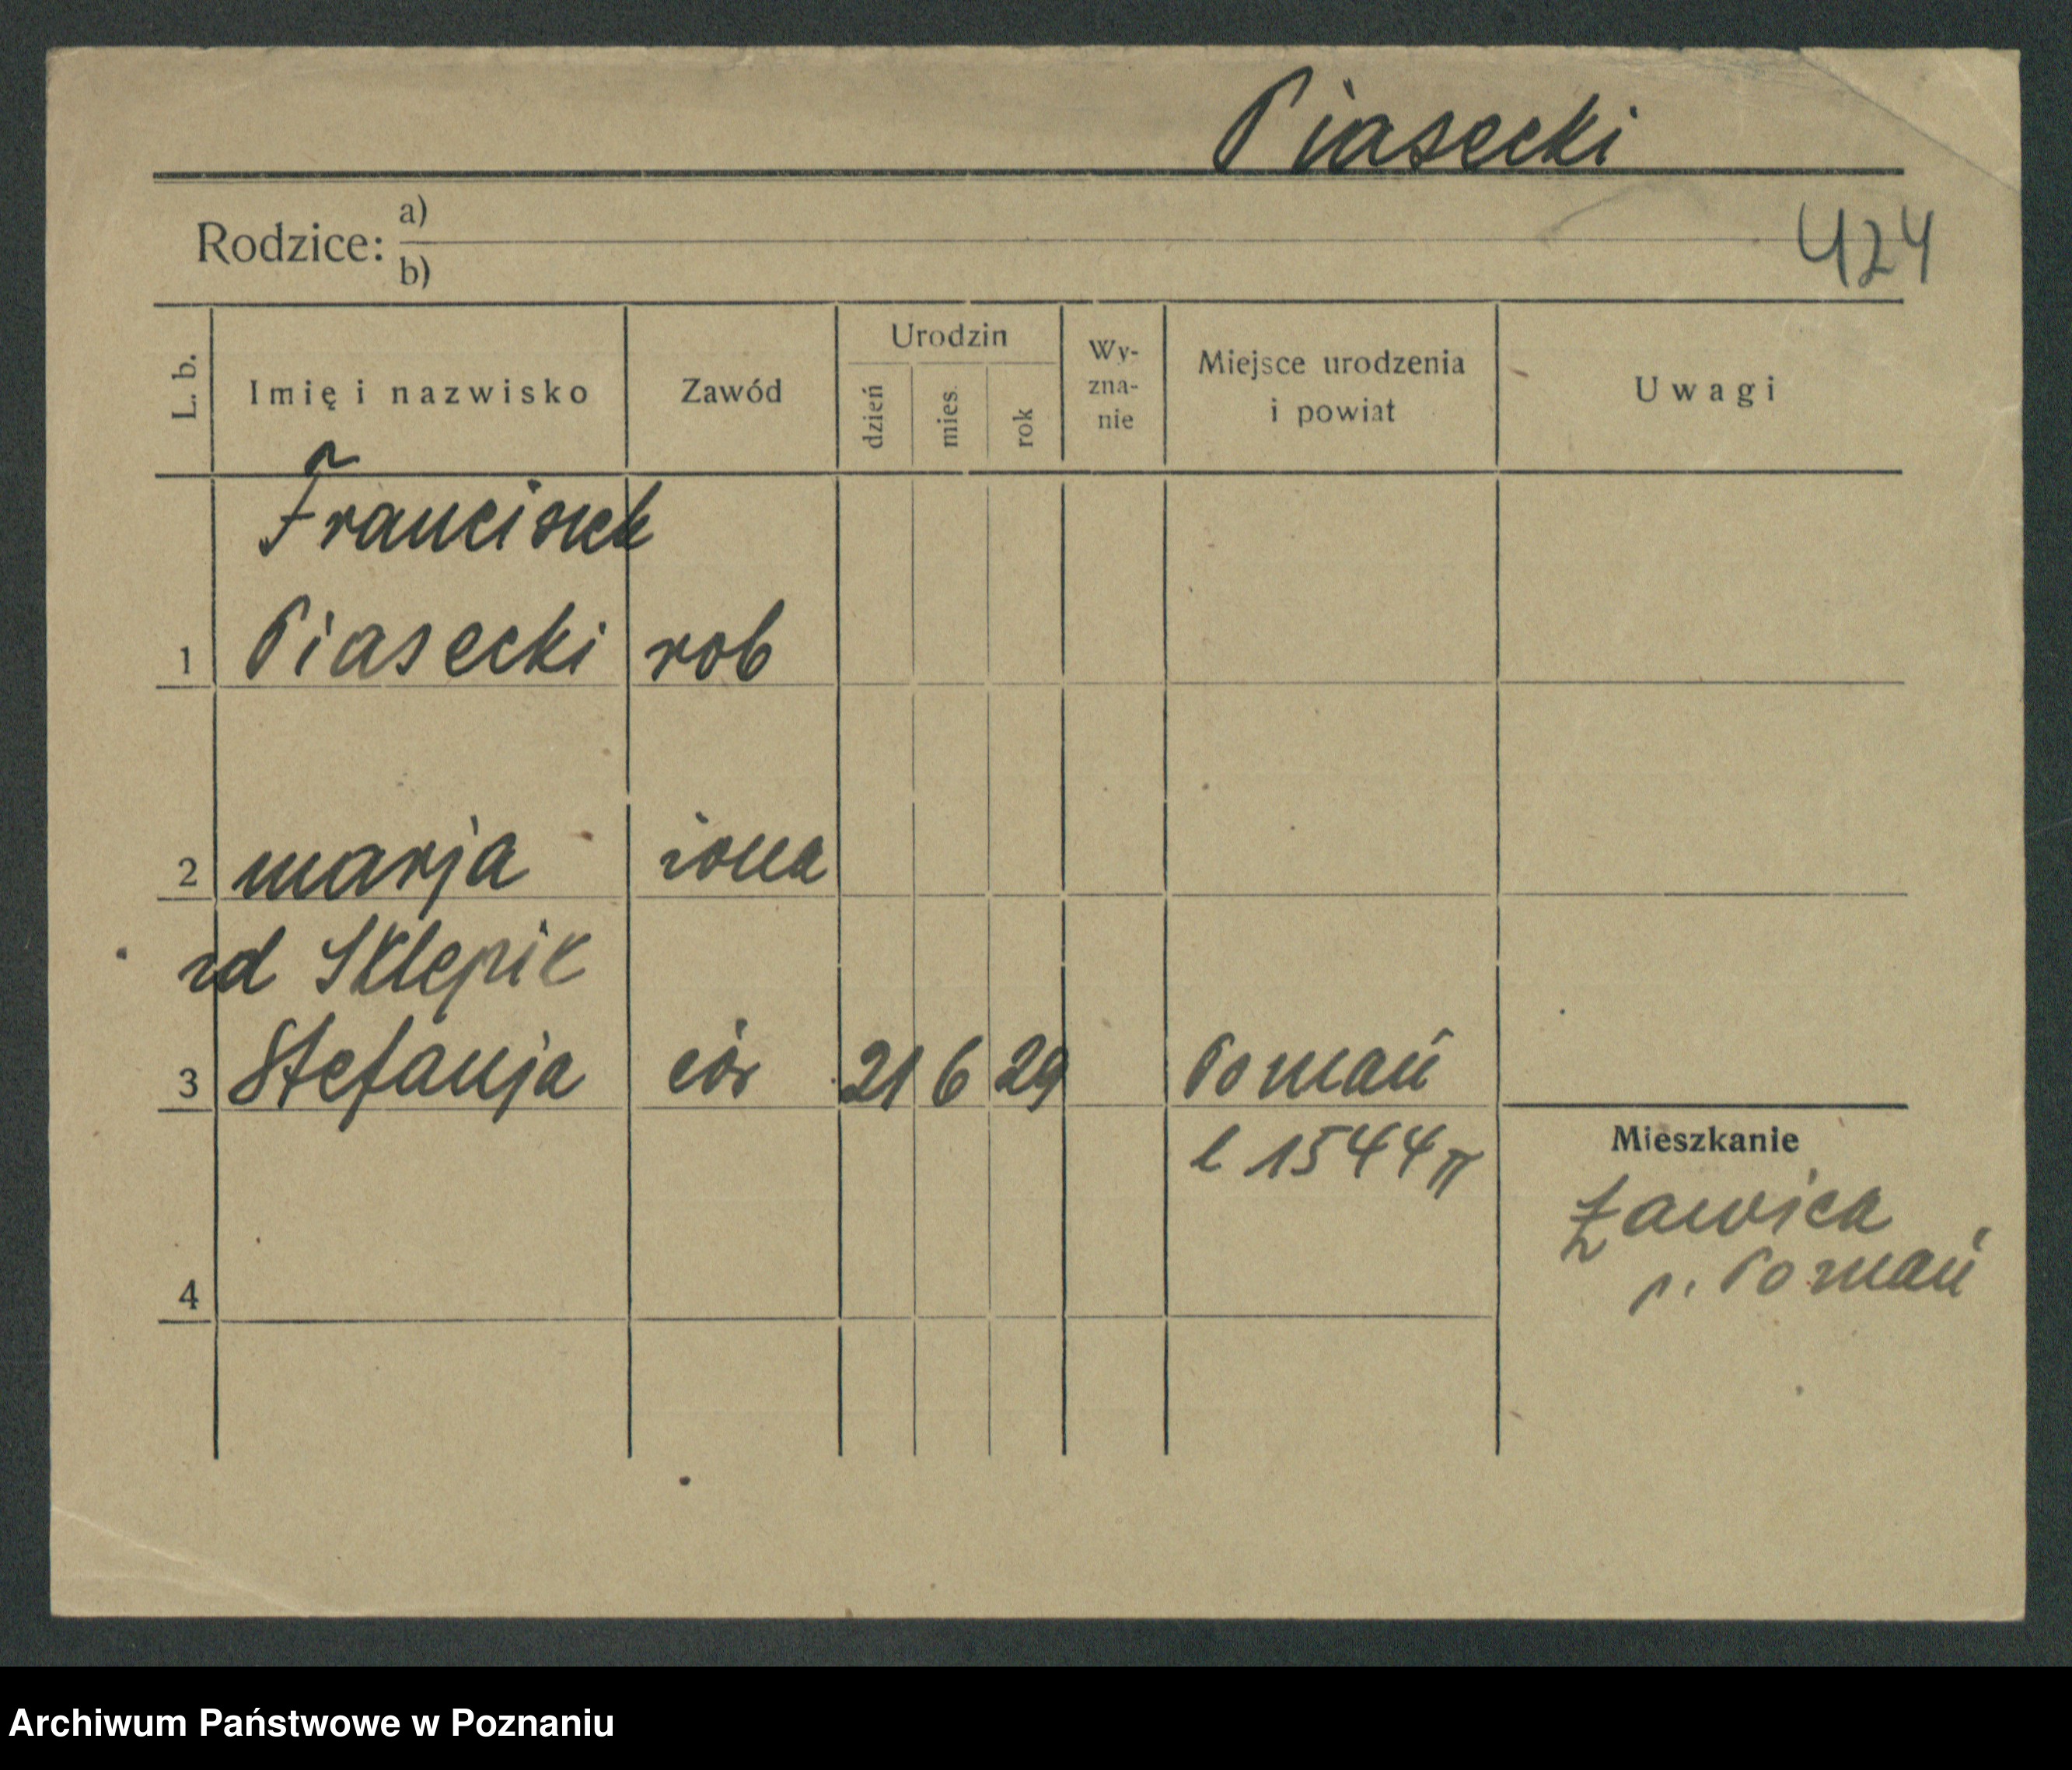 Piasecki
Rodzice: a)
b)
424
L. b.
Imię i nazwisko
Zawód
Urodzin
dzień
mies.
rok
Wy-
zna-
nie
Miejsce urodzenia
i powiat
Uwagi
Franciszek
1 Piasecki rob
2 Marja żona
zd Sklepik
3 Stefanja cór 21 6 29 Poznań
l 1544 π
Mieszkanie
Ławica
p. Poznań
4
Archiwum Państwowe w Poznaniu